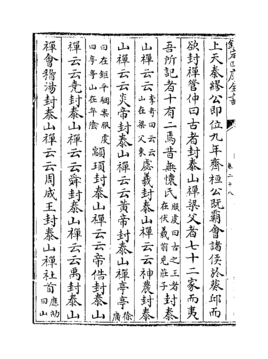 欽定四庫全書
卷二十八
上天繆公即位九年齊桓公既霸會諸侯於葵邱而
欲封禪管仲曰古者封泰山禪梁父者七十二家而夷
吾所記者十有二焉昔無懷氏服虔曰古之王者在伏羲前見莊子封泰
山禪云云李奇曰云云山在梁父東虙羲封泰山禪云云神農封泰
山禪云云炎帝封泰山禪云云黃帝封泰山禪亭亭徐廣
曰在鉅平駰案服虔曰亭亭山在牟陰顓頊封泰山禪云云帝俈封泰山
禪云云堯封泰山禪云云舜封泰山禪云云禹封泰山
禪會稽湯封泰山禪云云周成王封泰山禪社首應劭曰山